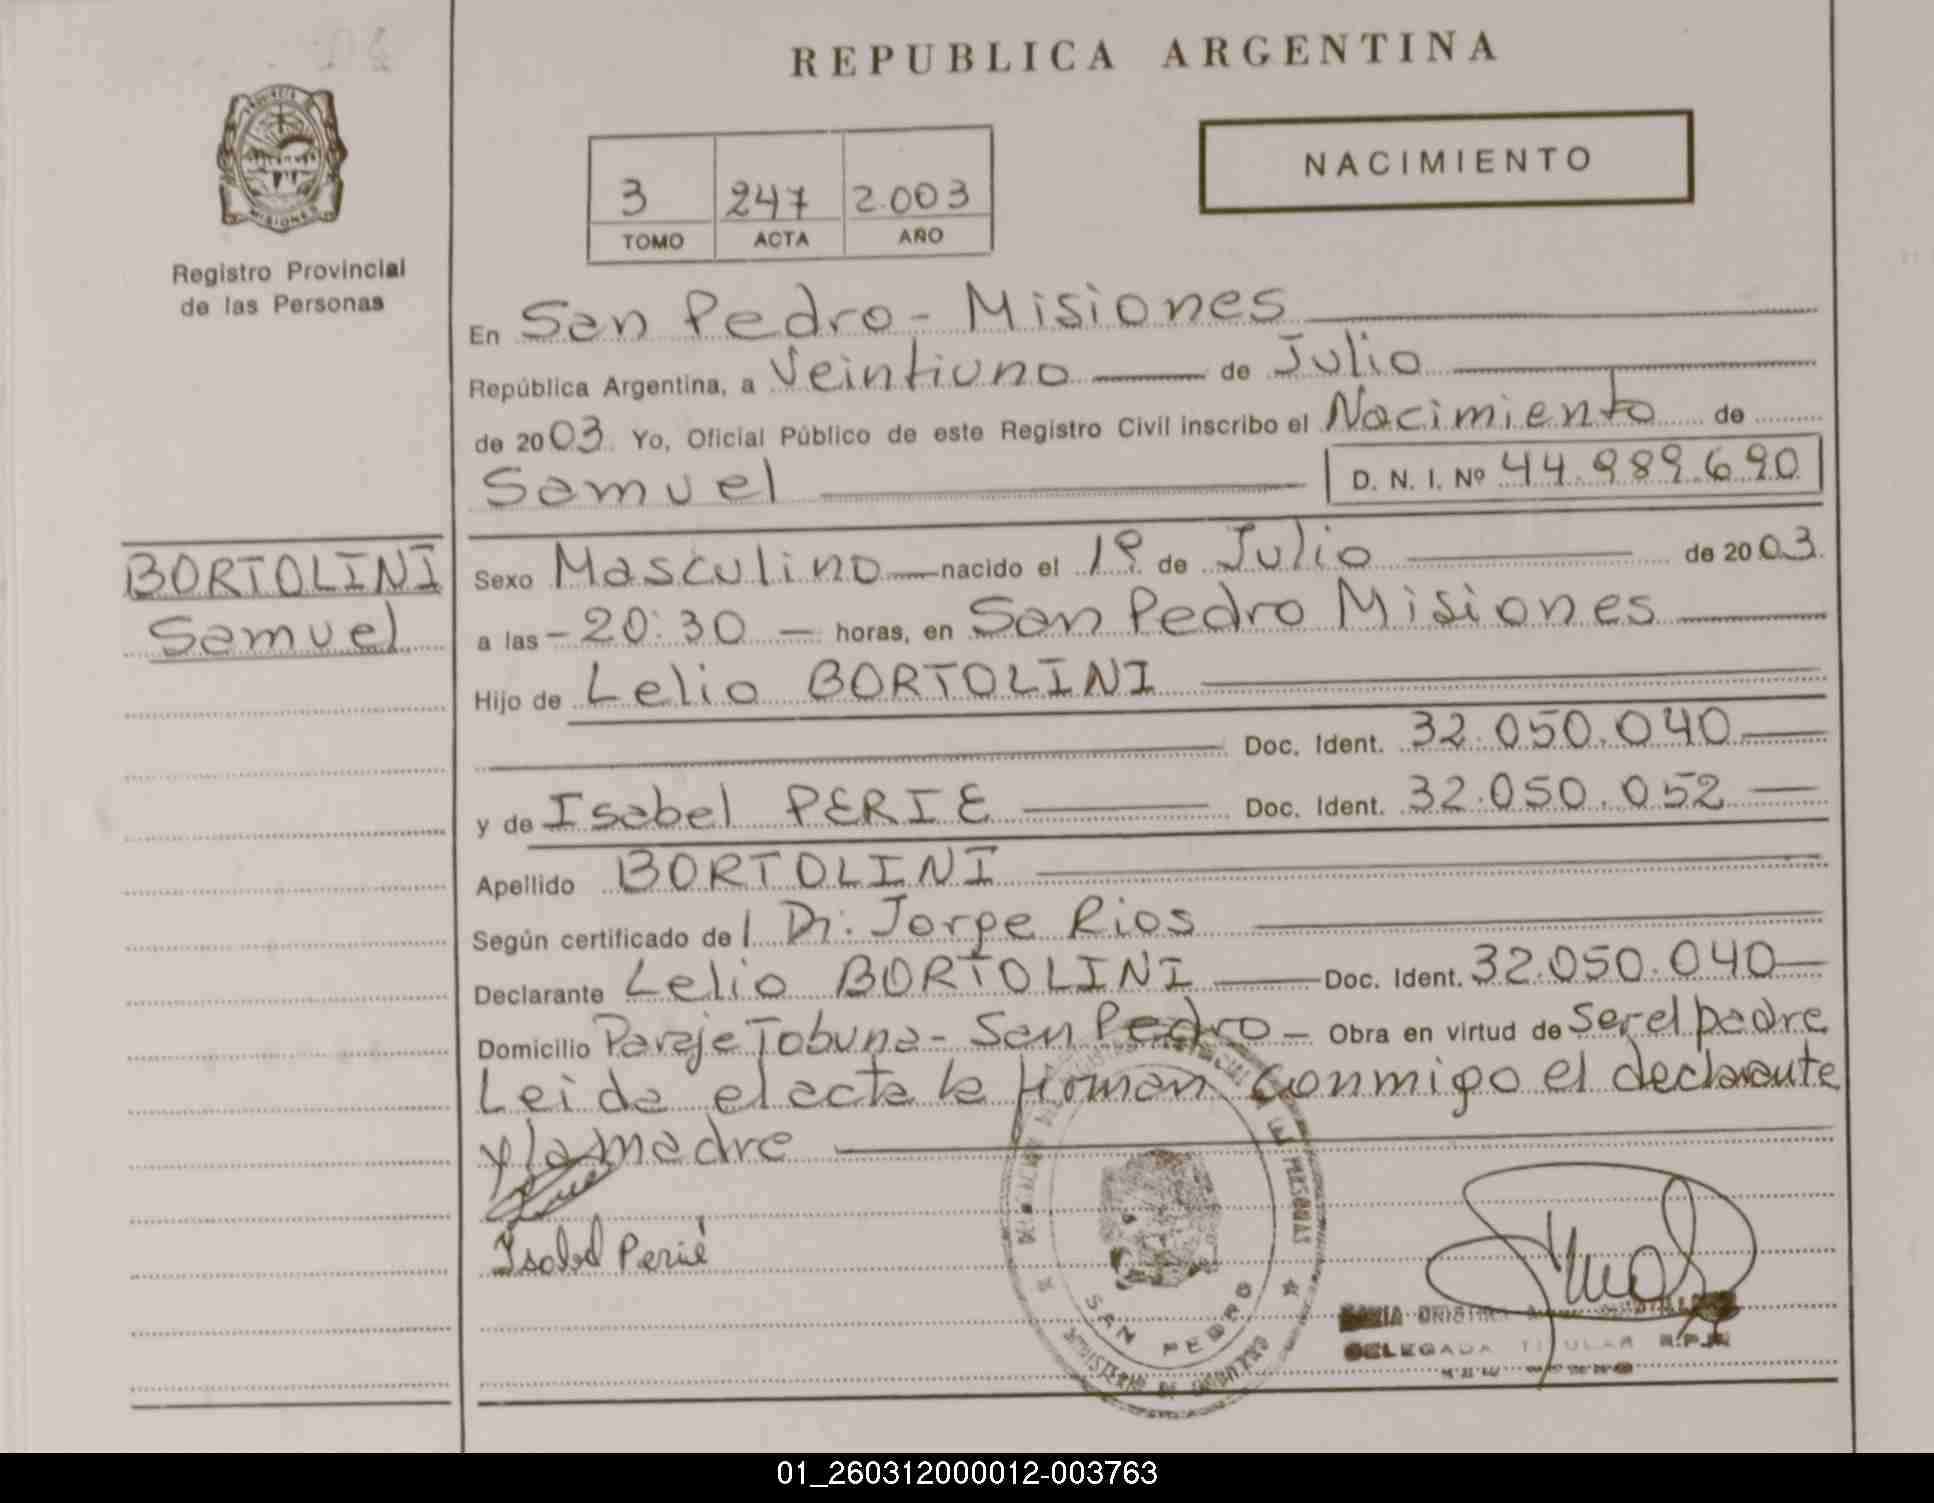 REPUBLICA ARGENTINA
NACIMIENTO
3 247 2.003
TOMO ACTA AÑO
PROVINCIA DE
MISIONES
Registro Provincial
de las Personas
En San Pedro - Misiones
República Argentina, a Veintiuno de Julio
de 2003. Yo, Oficial Público de este Registro Civil inscribo el Nacimiento de
Samuel D. N. I. Nº 44.989.690
BORTOLINI
Samuel
Sexo Masculino nacido el 1º de Julio de 2003.
a las - 20:30 - horas, en San Pedro Misiones
Hijo de Lelio BORTOLINI
Doc. Ident. 32.050.040
y de Isabel PERIE Doc. Ident. 32.050.052
Apellido BORTOLINI
Según certificado del Dr. Jorge Rios
Declarante Lelio BORTOLINI Doc. Ident. 32.050.040
Domicilio Paraje Tobuna - San Pedro - Obra en virtud de Ser el padre
Leida el acta la firman conmigo el declarante
y la madre
Isabel Perié
DE LAS PERSONAS
SAN PEDRO
MINISTERIO DE GOBIERNO
DELEGADA TITULAR R.P.P.
01_260312000012-003763